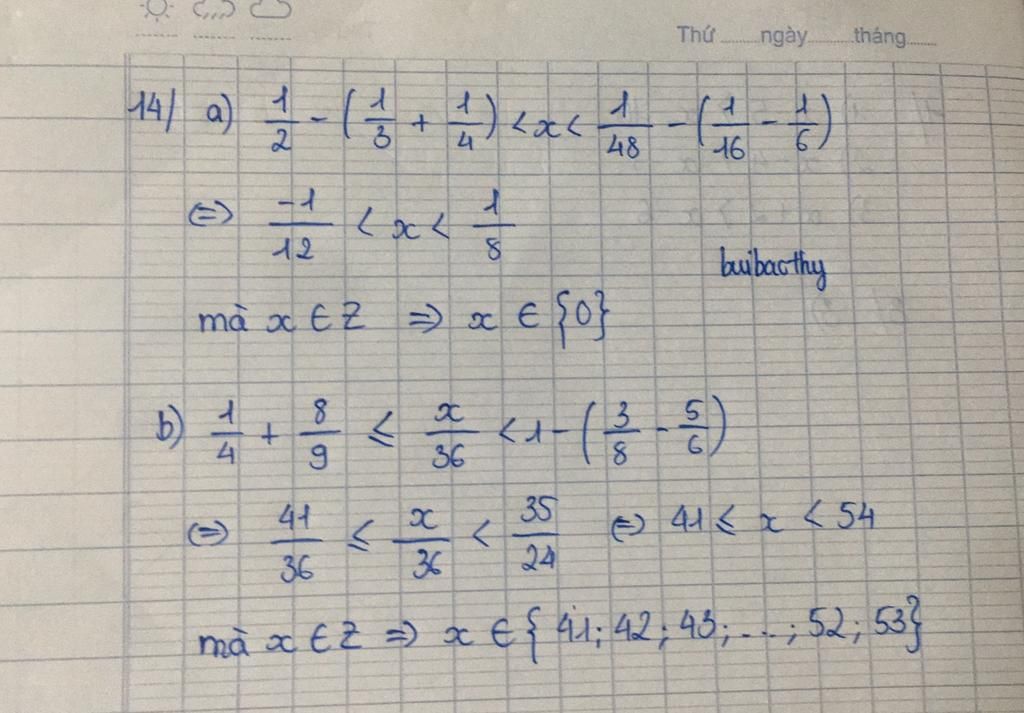 Thứ ........ngày........tháng......
14/ a) 1/2 - (1/3 + 1/4) < x < 1/48 - (1/16 - 1/6)
⇔ -1/12 < x < 1/8
buibacthy
mà x ∈ Z ⇒ x ∈ {0}
b) 1/4 + 8/9 ≤ x/36 < 1 - (3/8 - 5/6)
⇔ 41/36 ≤ x/36 < 35/24 ⇔ 41 ≤ x < 54
mà x ∈ Z ⇒ x ∈ { 41; 42; 43; ...; 52; 53}